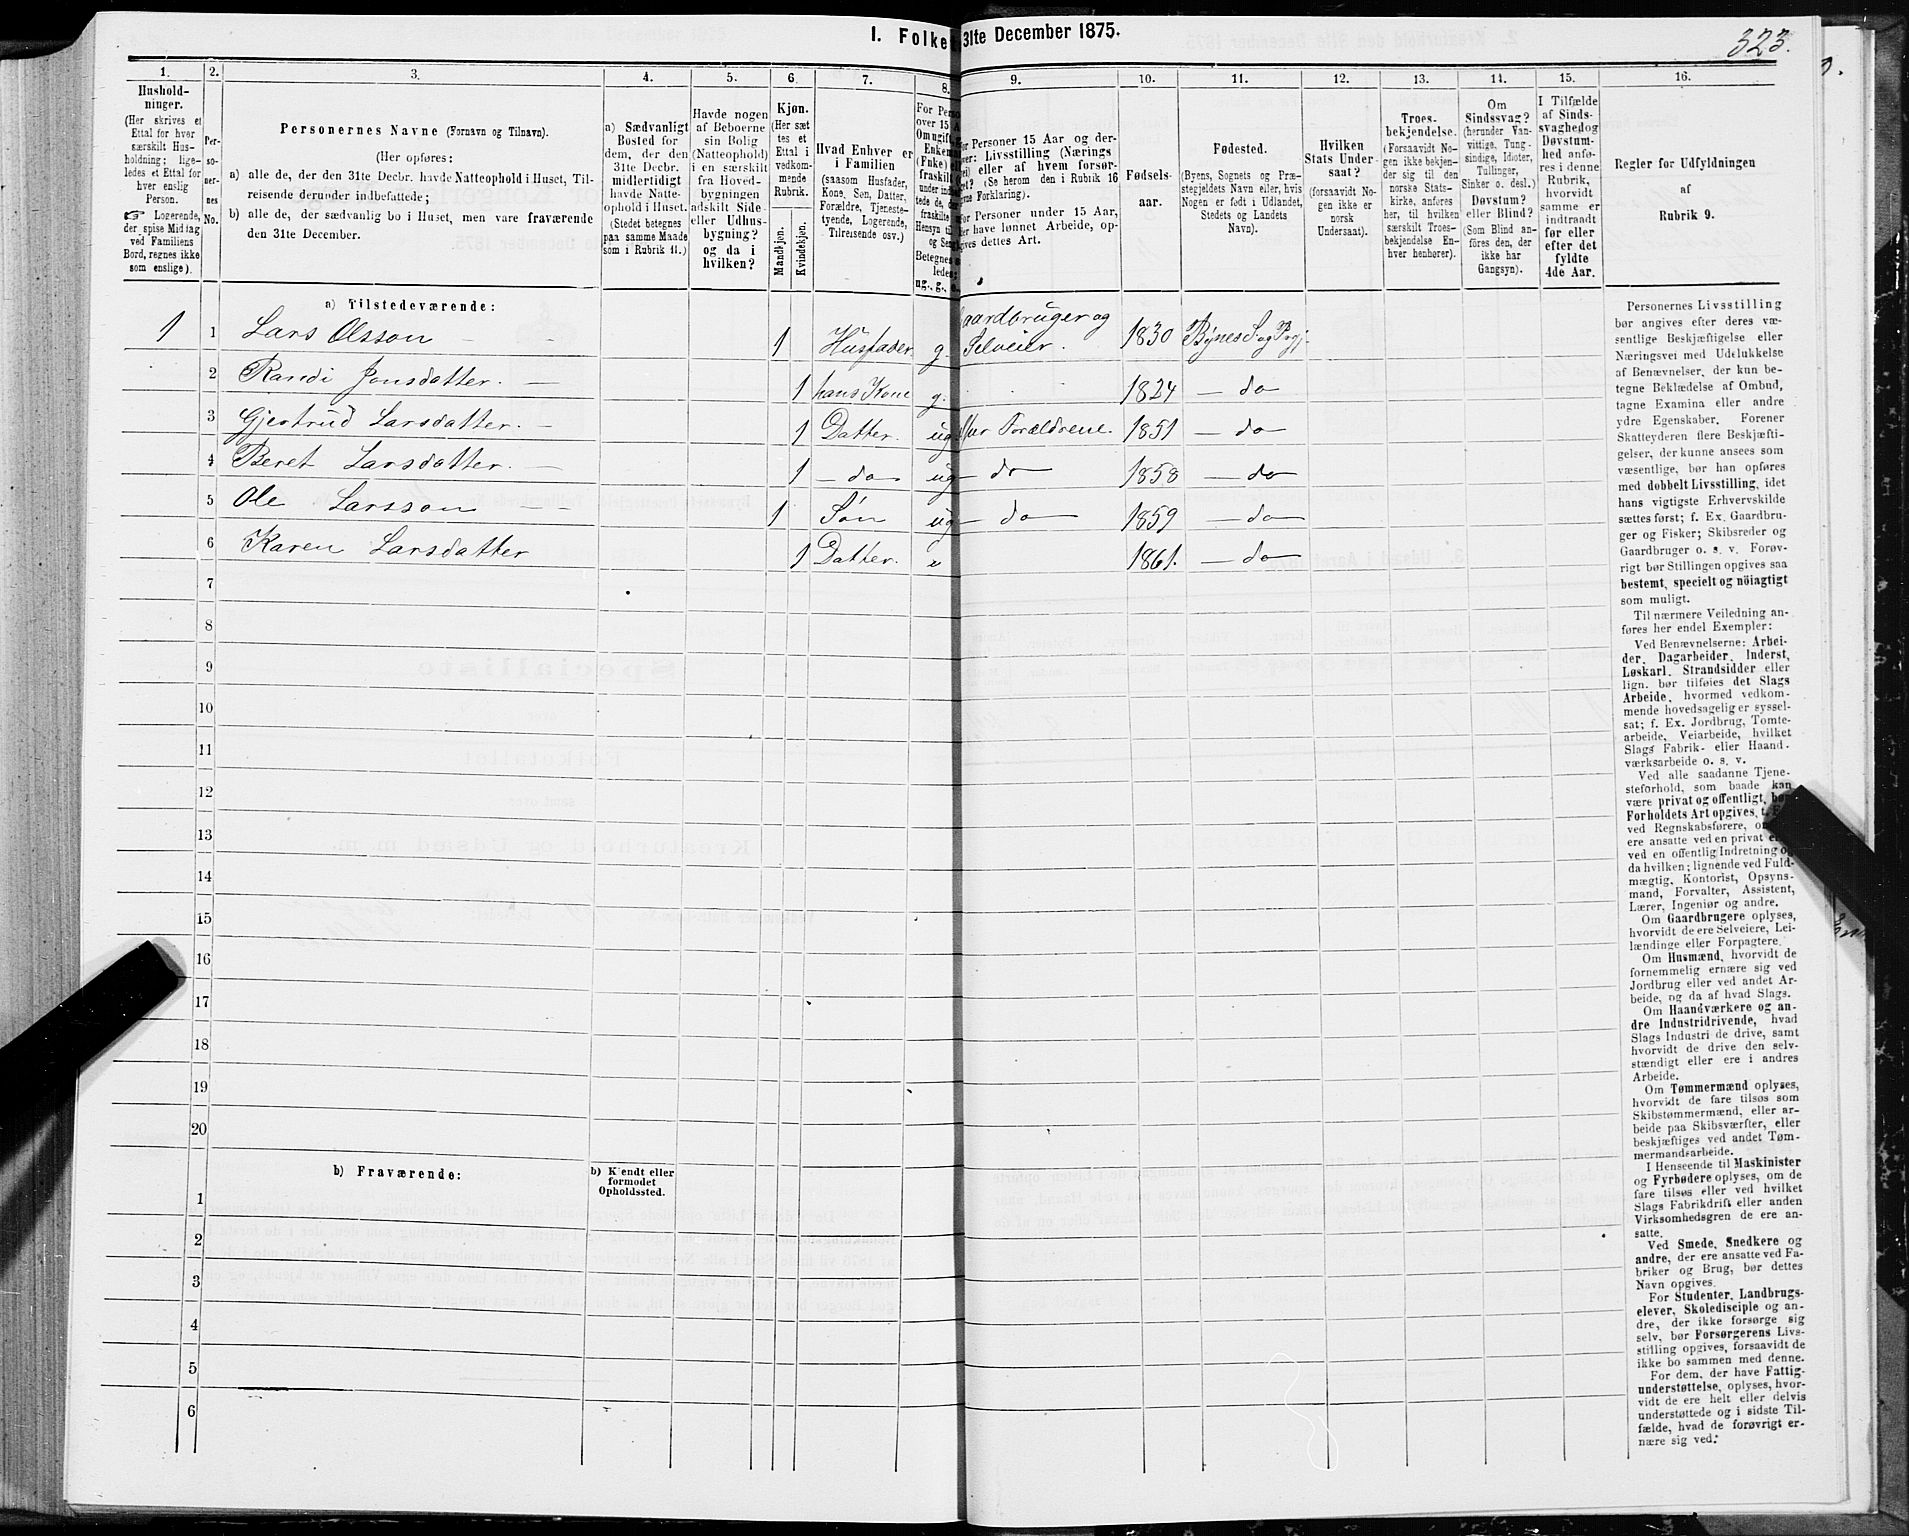 I. Folke 31te December 1875.
323.
1. 2. 3. 4. 5. 6. 7. 8. 9. 10. 11. 12. 13. 14. 15. 16.
Hushold-
ninger.
(Her skrives et
Ettal for hver
særskilt Hus-
holdning; lige-
ledes et Ettal for
hver enslig
Person.
☞ Logerende,
der spise Middag
ved Familiens
Bord, regnes ikke
som enslige).
Per-
so-
ner-
nes
No.
Personernes Navne (Fornavn og Tilnavn).
(Her opføres:
a) alle de, der den 31te Decbr. havde Natteophold i Huset, Til-
reisende derunder indbefattede;
b) alle de, der sædvanlig bo i Huset, men vare fraværende
den 31te December.
a) Sædvanligt
Bosted for
dem, der den
31te Decbr.
midlertidigt
havde Natte-
ophold i Huset.
(Stedet betegnes
paa samme Maade
som i Rubrik 11.)
Havde nogen
af Beboerne
sin Bolig
(Natteophold)
i en særskilt
fra Hoved-
bygningen
adskilt Side-
eller Udhus-
bygning?
og da i
hvilken?
Kjøn.
(Her sæt
tes et
Ettal i
vedkom-
mende
Rubrik.
Mandkjøn.
Kvindekjøn.
Hvad Enhver er
i Familien
(saasom Husfader,
Kone, Søn, Datter,
Forældre, Tjeneste-
tyende, Logerende,
Tilreisende osv.)
For Pers
over 15 A
Om ugift,
Enkem
(Fnke)
fraskilt
under ind
tede de, d
fraskilte
Hensyn til
og Seng
Betegnes s
ledes:
ug., g., e.
For Personer 15 Aar og der-
over: Livsstilling (Nærings
vei) eller af hvem forsør-
get? (Se herom den i Rubrik 16
givne Forklaring).
For Personer under 15 Aar,
der have lønnet Arbeide, op-
gives dettes Art.
Fødsels-
aar.
Fødested.
(Byens, Sognets og Præ-
stegjeldets Navn eller, hvis
Nogen er født i Udlandet,
Stedets og Landets
Navn).
Hvilken
Stats Under-
saat?
(forsaavidt No-
gen ikke er
norsk
Undersaat).
Troes-
bekjendelse.
(Forsaavidt No-
gen ikke bekjen-
der sig til den
norske Stats-
kirke, anføres
her, til hvilken
særskilt Troes-
bekjendelse En-
hver henhører).
Om
Sindssvag?
(herunder Van-
vittige, Tung-
sindige, Idioter,
Tullinger,
Sinker o. desl.)
Døvstum?
eller Blind?
(Som Blind an-
føres den, der
ikke har
Gangsyn).
I Tilfælde
af Sinds-
svaghed og
Døvstum-
hed anfø-
res i denne
Rubrik,
hvorvidt
samme er
indtraadt
før eller
efter det
fyldte
4de Aar.
Regler for Udfyldningen
af
Rubrik 9.
a) Tilstedeværende:
1 1 Lars Olsson 1 Husfader g. Gaardbruger og Selveier. 1830 Bynes S. og Prgj.
2 Randi Jonsdatter. — 1 hans Kone g. 1824 — do
3 Gjertrud Larsdatter. — 1 Datter. ug Hur Forældrene. 1851 — do
4 Beret Larsdatter. — 1 — do ug — do — 1858 — do
5 Ole Larsson — 1 Søn ug — do — 1859 — do
6 Karen Larsdatter 1 Datter. u 1861. — do
7
8
9
10
11
12
13
14
15
16
17
18
19
20
b) Fraværende:
b) Kjendt eller
formodet
Opholdssted.
1
2
3
4
5
6
Personernes Livsstilling
bør angives efter deres væ-
sentlige Beskjæftigelse eller
Næringsvei med Udelukkelse
af Benævnelser, der kun be-
tegne Beklædelse af Ombud,
tagne Examina eller andre
ydre Egenskaber. Forener
Skatteyderen flere Beskjæfti-
gelser, der kunne ansees som
væsentlige, bør han opføres
med dobbelt Livsstilling, idet
hans vigtigste Erhvervskilde
sættes først; f. Ex. Gaardbru-
ger og Fisker; Skibsreder og
Gaardbruger o. s. v. Forøv-
rigt bør Stillingen opgives saa
bestemt, specielt og nöiagtigt
som muligt.
Til nærmere Veiledning an-
føres her endel Exempler:
Ved Benævnelserne: Arbei-
der, Dagarbeider, Inderst,
Løskarl, Strandsidder eller
lign. bør tilføies det Slags
Arbeide, hvormed vedkom-
mende hovedsagelig er syssel-
sat; f. Ex. Jordbrug, Tomte-
arbeide, Veiarbeide, hvilket
Slags Fabrik- eller Haand-
værksarbeide o. s. v.
Ved alle saadanne Tjene-
steforhold, som baade kan
være privat og offentligt, bør
Forholdets Art opgives, t.
ved Regnskabsførere, o
ere ansatte ved en privat e
ved en offentlig Indretning og
da hvilken; lignende ved Fuld-
mægtig, Kontorist, Opsyns-
mand, Forvalter, Assistent,
Lærer, Ingeniør og andre.
Om Gaardbrugere oplyses,
hvorvidt de ere Selveiere, Lei-
lændinge eller Forpagtere.
Om Husmænd, hvorvidt de
fornemmelig ernære sig ved
Jordbrug eller ved andet Ar-
beide, og da af hvad Slags.
Om Haandværkere og an-
dre Industridrivende, hvad
Slags Industri de drive, samt
hvorvidt de drive den selv-
stændigt eller ere i andres
Arbeide.
Om Tømmermænd oplyses,
hvorvidt de fare tilsøs som
Skibstømmermænd, eller ar-
beide paa Skibsværfter, eller
beskjæftiges ved andet Tøm-
mermandsarbeide.
I Henseende til Maskinister
og Fyrbødere oplyses, om de
fare tilsøs eller ved hvilket
Slags Fabrikdrift eller anden
Virksomhedsgren de ere an-
satte.
Ved Smede, Snedkere og
andre, der ere ansatte ved Fa-
briker og Brug, bør dettes
Navn opgives.
For Studenter, Landbrugs-
elever, Skoledisciple og an-
dre, der ikke forsørge sig
selv, bør Forsørgerens Livs-
stilling opgives, forsaavidt de
ikke bo sammen med denne.
For dem, der have Fattig-
understøttelse, oplyses, hvor-
vidt de ere helt eller delvis
understøttede og i sidste Til-
fælde, hvad de forøvrigt er-
nære sig ved.